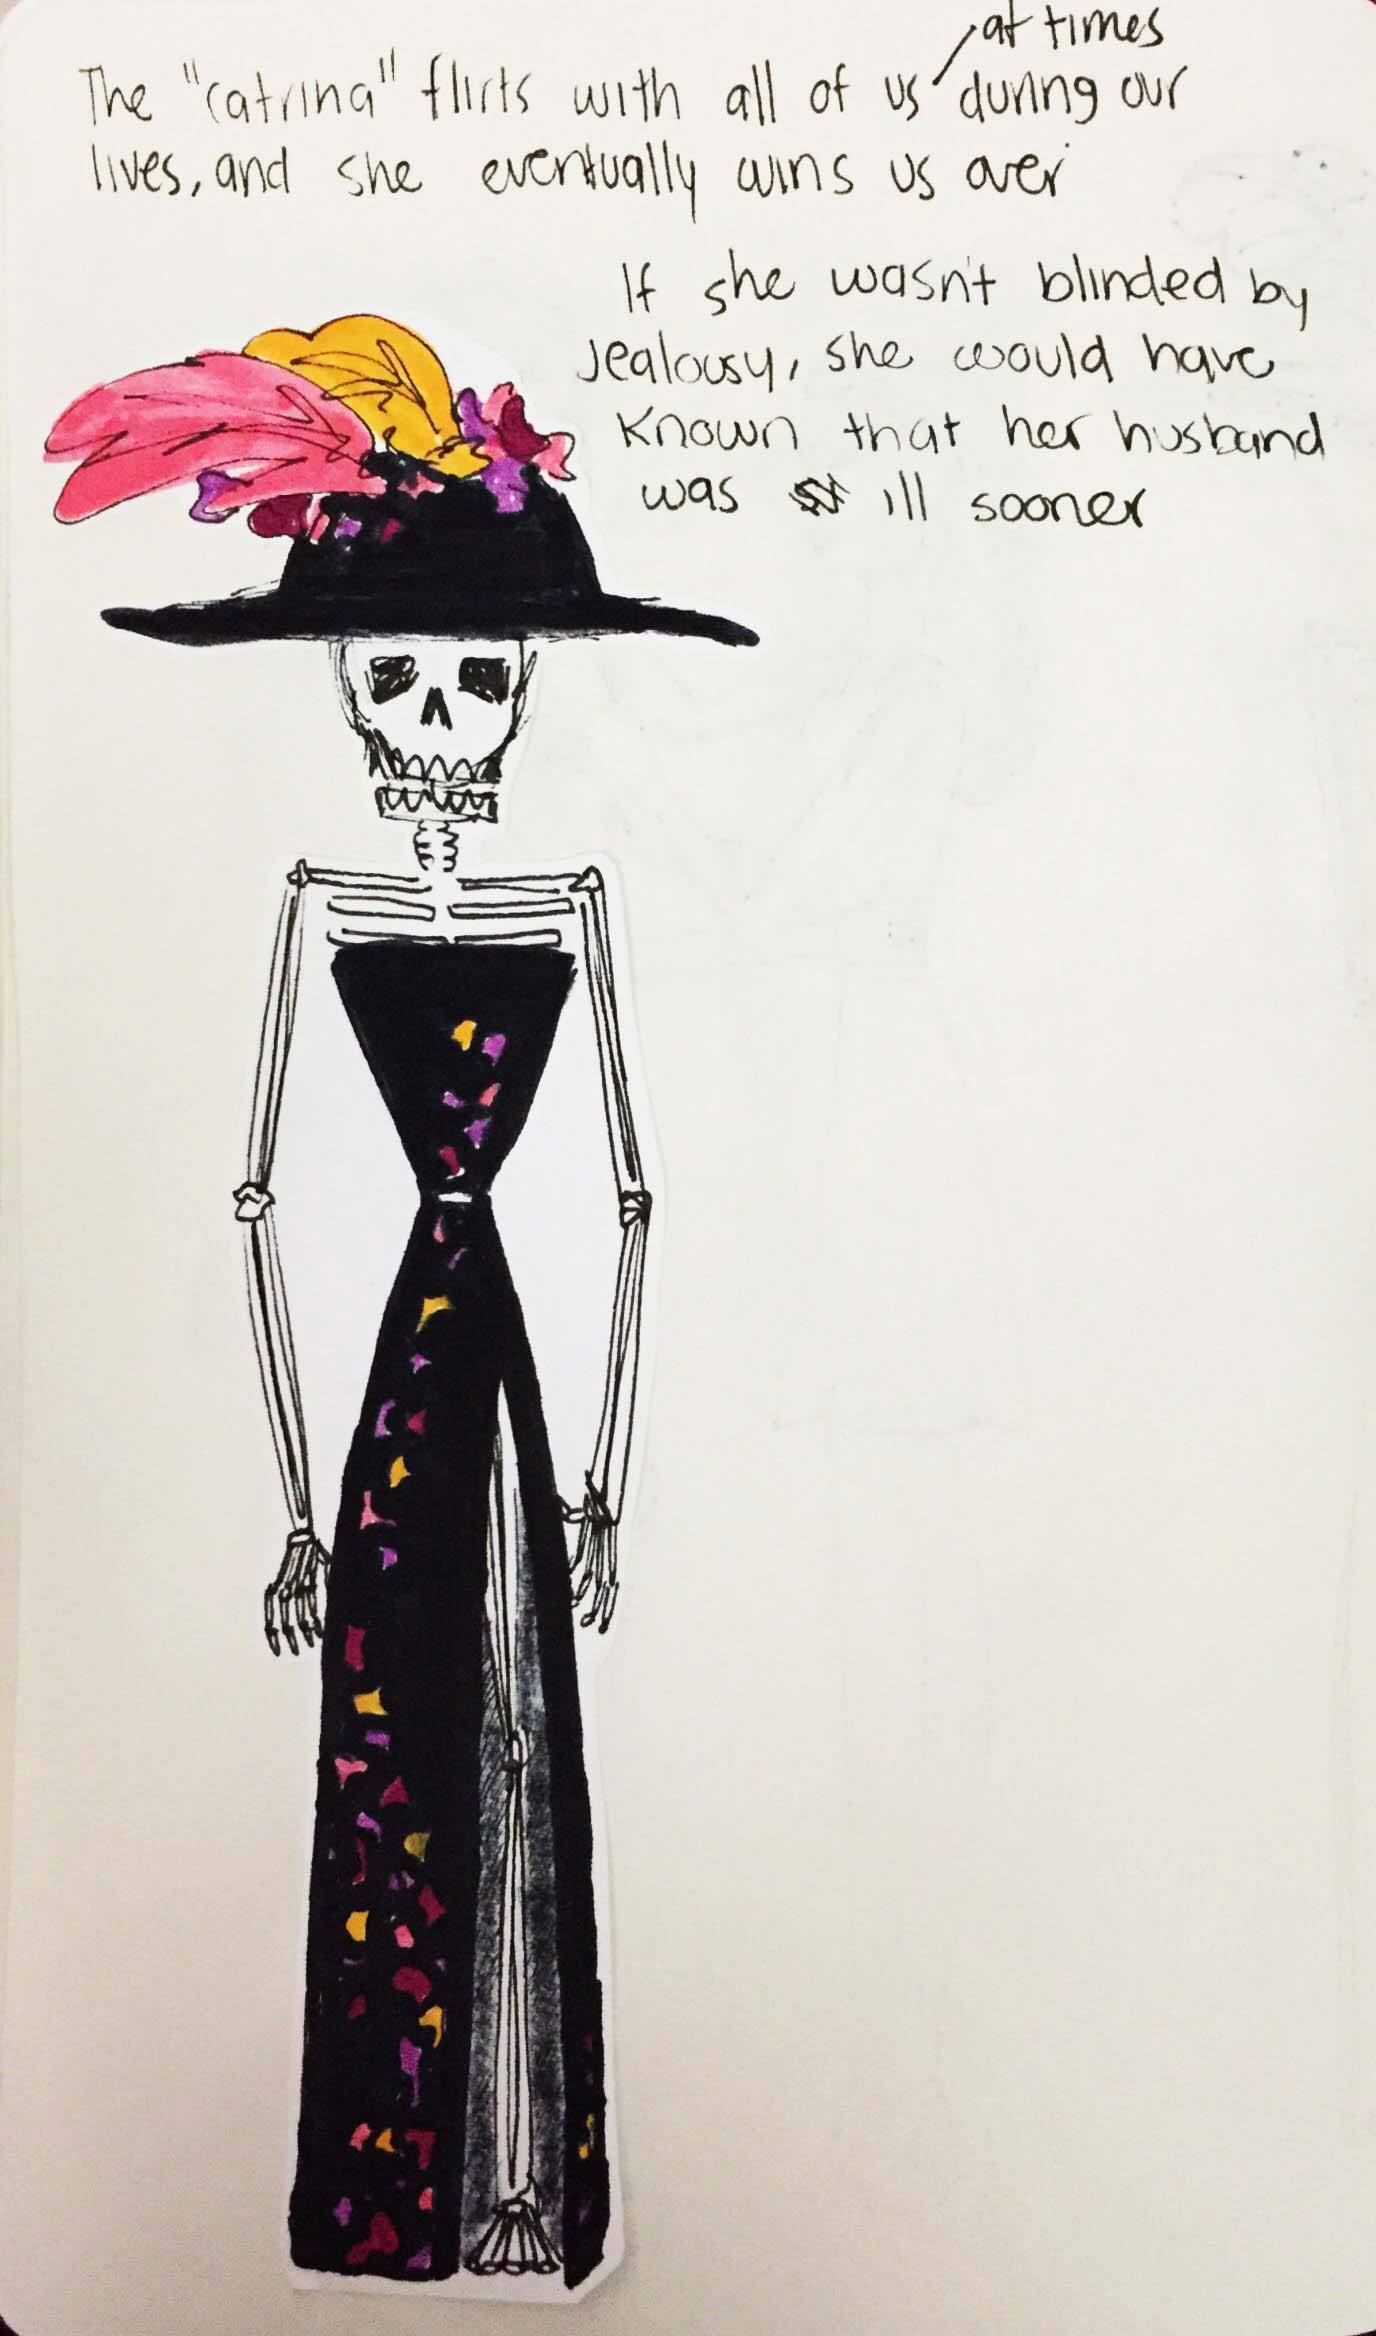 at times
The "catrina" flirts with all of us during our
lives, and she eventually wins us over
If she wasn't blinded by
Jealousy, she would have
Known that her husband
was ill sooner